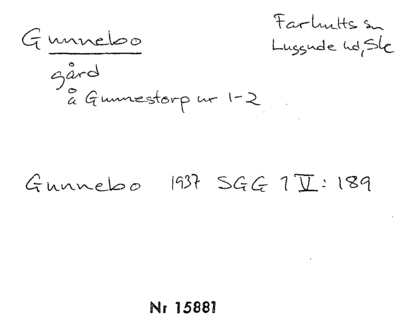 Gunnebo
Farhults sn
Luggude hd, Sk
gård
å Gunnestorp nr 1-2
Gunnebo 1937 SGG 1 V: 189
Nr 15881